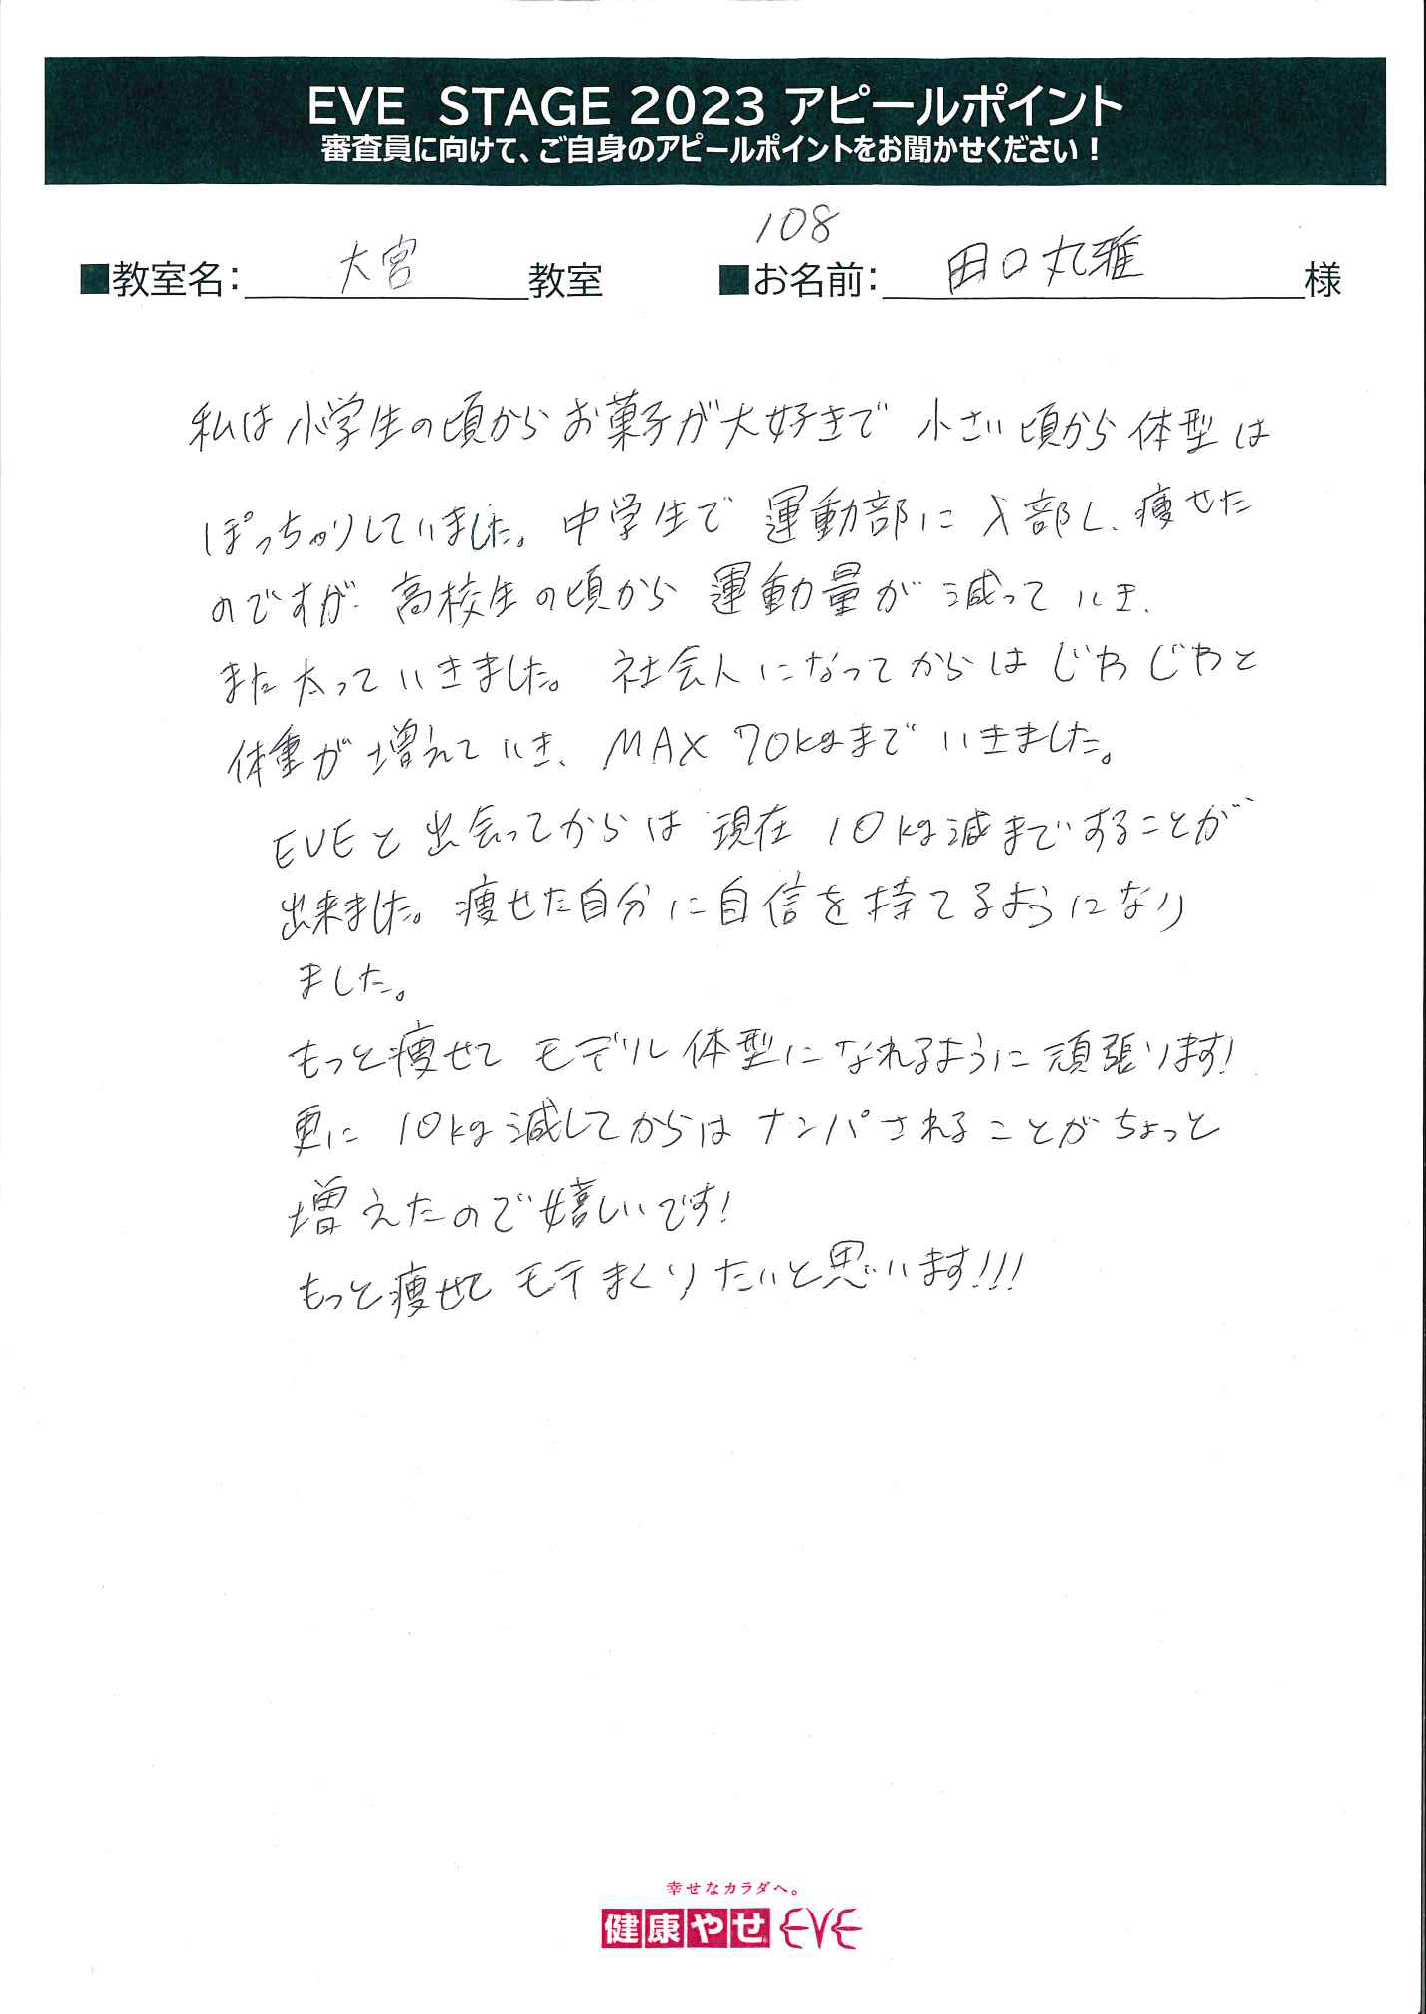 EVE STAGE 2023 アピールポイント
審査員に向けて、ご自身のアピールポイントをお聞かせください！
108
■教室名： 大宮 教室 ■お名前： 田口丸雅 様
私は小学生の頃からお菓子が大好きで 小さい頃から体型は
ぽっちゃりしていました。中学生で 運動部に入部し、痩せた
のですが、高校生の頃から 運動量が減っていき、
また太っていきました。社会人になってからはじわじわと
体重が増えていき、MAX 70kgまでいきました。
EVEと出会ってからは 現在 10kg減まですることが
出来ました。痩せた自分に自信を持てるようになり
ました。
もっと痩せて モデル体型になれるように頑張ります！
更に 10kg減してからはナンパされることがちょっと
増えたので嬉しいです！
もっと痩せて モテまくりたいと思います！！！
幸せなカラダへ。
健康やせ EVE